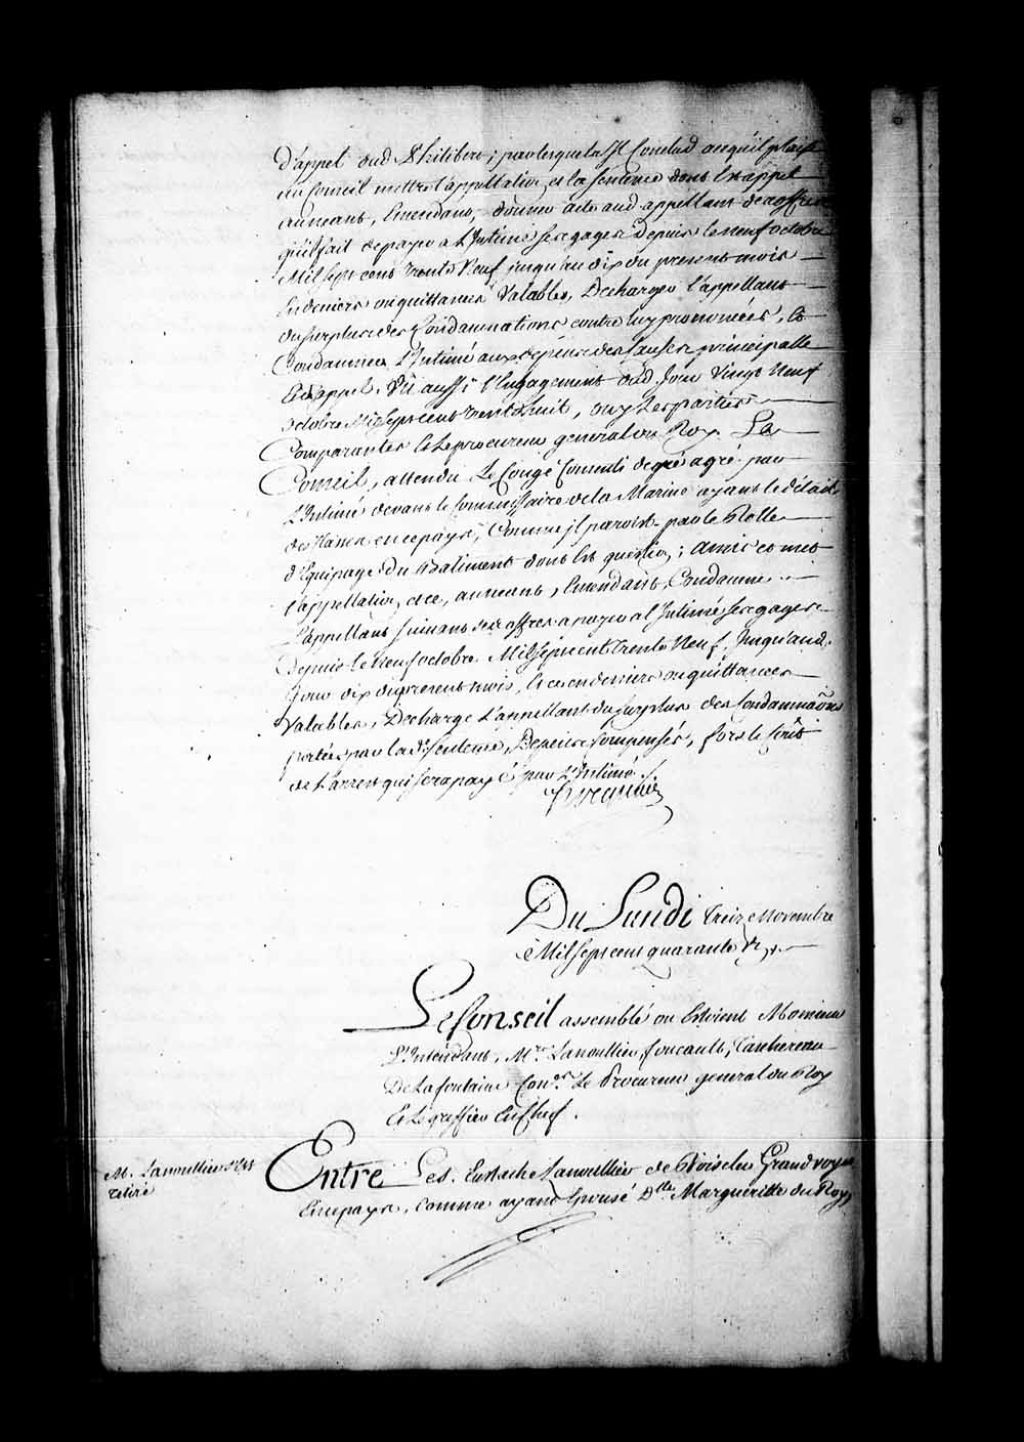 d'appel dud Philibert; par lesquels Il Conclud acequil plaise
au Conseil mettre l'appellation, et la sentence dont Est appel
au neant, Emendant, donner acte aud. appellant de a offre
quil fait de payer a L'Intimé ses gages depuis le neuf octobre
Mil Sept cens trente Neuf jusqu'au dix du present mois
En deniers ou quittances Valables, Decharger l'appellant
du surplus des Condamnations contre luy prononcées, Et
Condamner L'Intimé aux depens des causes principalle
Et d'appel. Vû aussi l'Engagement dud. Jour Vingt Neuf
octobre Mil Sept cens trente huit, ouy Les parties
Comparantes Et Le procureur general du Roy. Le
Conseil, attendu Le Congé Consenti de gré agré par
L'Intimé devant le Commissaire de la Marine ayant le détail
des Classes en ce pays, Comme jl paroist par le Rolle
d'Equipage du Batiment dont Est question; a mis et met
l'appellation, et ce, au neant, Emendant, Condamne
L'appellant suivant ses offres a payer a l'Intimé, ses gages
Depuis le Neuf octobre Mil Sept cent trente Neuf, Jusqu'aud.
Jour dix du present mois, Et ce en deniers ou quittances
Valables, Decharge L'appellant du surplus des Condamnãons
portées par lad.e Sentence, Depens Compensés, fors le Coust
de L'arrest qui sera payé par L'Intimé ./.
Hocquart
Du Lundi treize Novembre
Mil Sept cent quarante
Le Conseil assemblé ou Estoient Monsieur
L'Intendant, Mrs Lanoullier, foucault, Taschereau
De Lafontaine Con.ers Le Procureur general du Roy
Et Le greffier En Chef.
M. Lanoullier s'est
retiré
Entre Le S. Eustache Lanoullier de Boisclere Grand voyer
En ce pays, Comme ayant Epousé D.lle Margueritte du Roy,